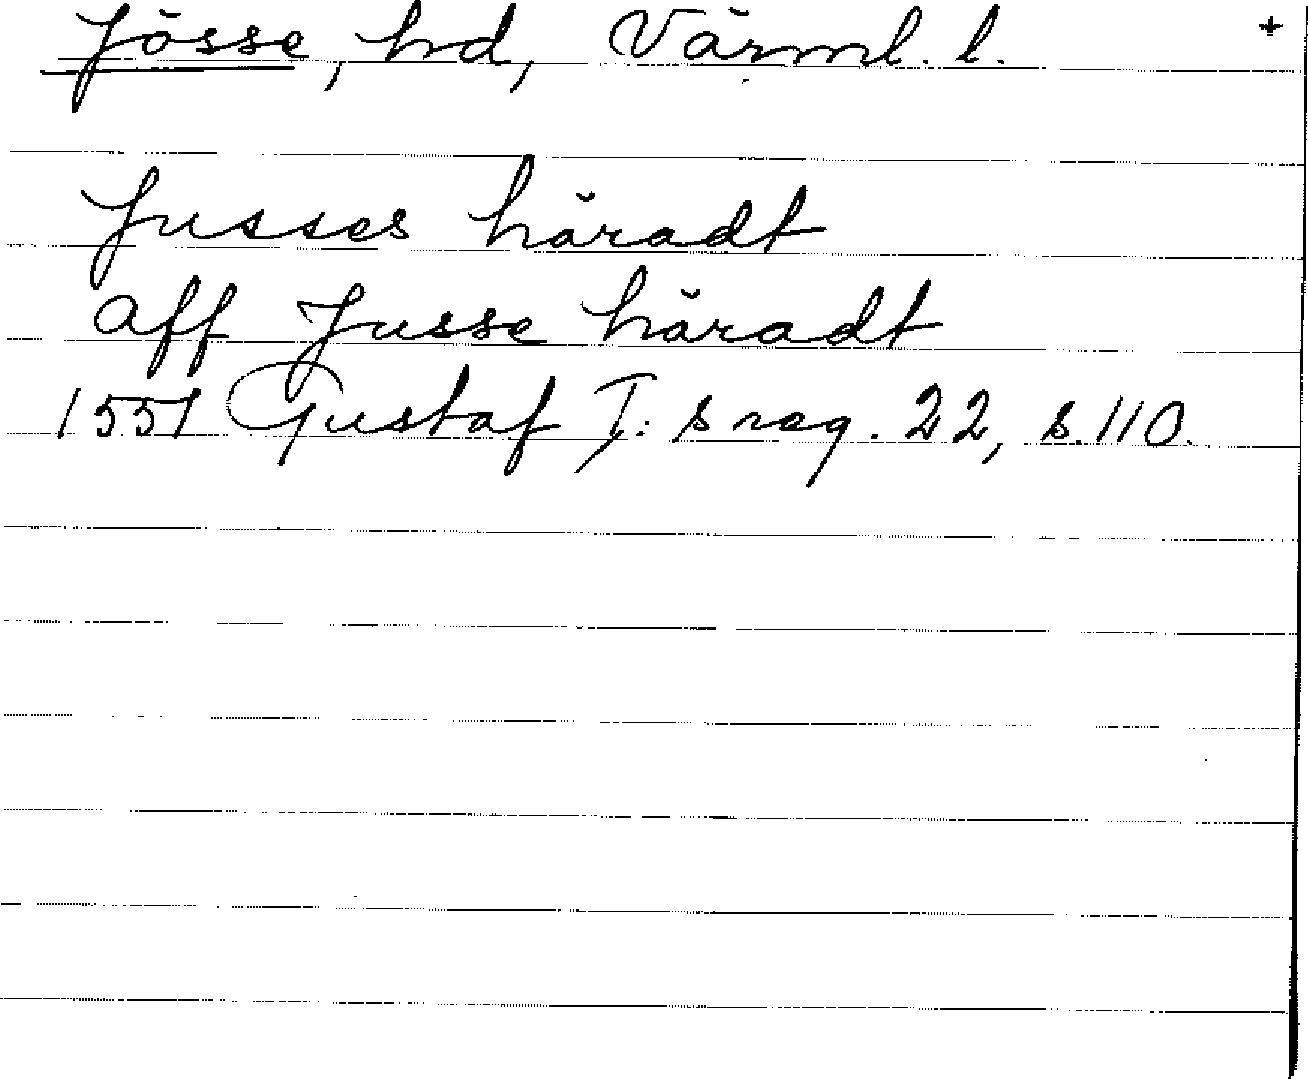 Jösse, hd, Värml. l. +
Jusses häradt
aff Jusse häradt
1551 Gustaf I:s reg. 22, s. 110.